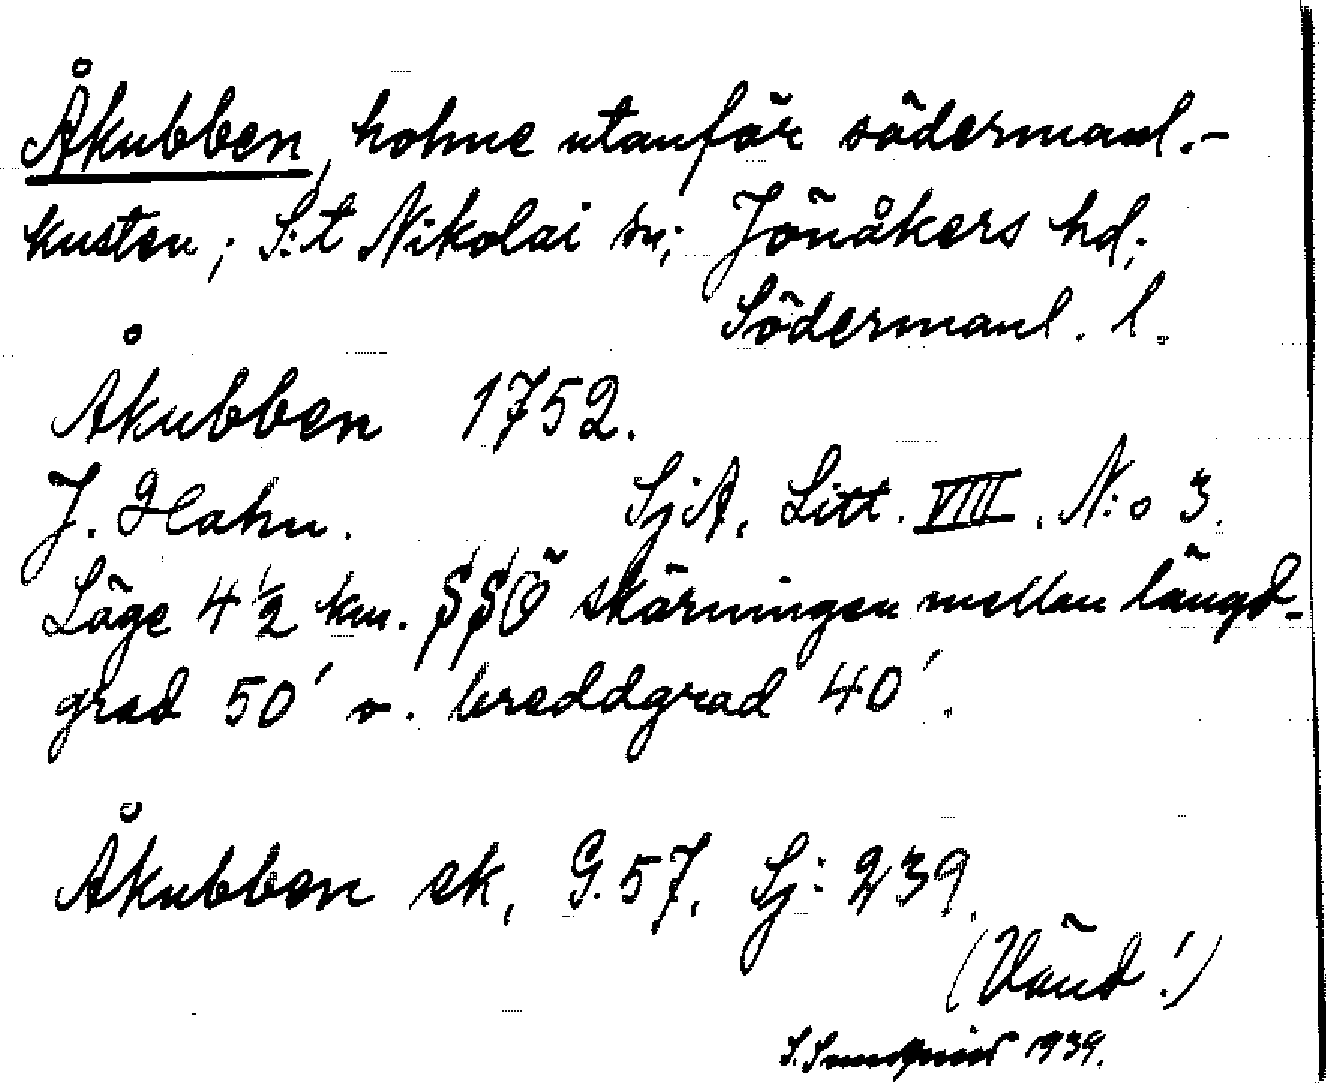 Åkubben, holme utanför södermanl.-
kusten; S:t Nikolai sn; Jönåkers hd;
Södermanl. l.
Åkubben 1752.
J. Hahn. SjA, Litt. VIII. N:o 3.
Läge 4½ km. SSÖ skärningen mellan längd-
grad 50' o. breddgrad 40'.
Åkubben ek, G.57, Sj: 239.
(Vänd!)
S. Sundqvist 1939.